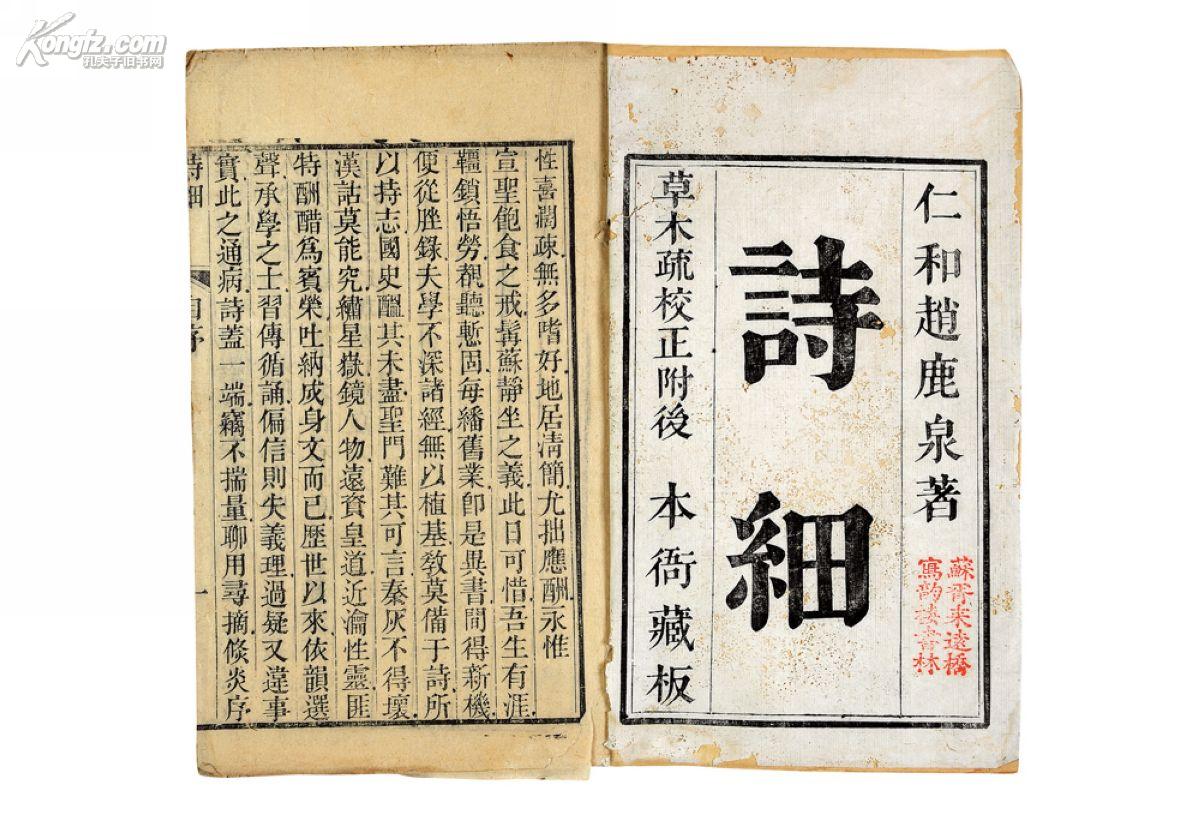 Kongfz.com
孔夫子旧书网
仁和趙鹿泉著
蘇胥來遠橋
寫韵樓書林
詩細
草木疏校正附後 本衙藏板
性喜濶疎無多嗜好地居清簡尤拙應酬永惟
宣聖飽食之戒髯蘇靜坐之義此日可惜吾生有涯
韁鎖悟勞覩聽慙固每繙舊業卽是異書間得新機
便從脞錄夫學不深諸經無以植基敎莫備于詩所
以持志國史醞其未盡聖門難其可言秦灰不得壞
漢詁莫能究繡星嶽鏡人物遠資皇道近瀹性靈匪
特酬醋爲賓榮吐納成身文而已歷世以來依韻選
聲承學之士習傳循誦偏信則失義理過疑又違事
實此之通病詩蓋一端竊不揣量聊用尋摘倏炎序
詩細 自序 一